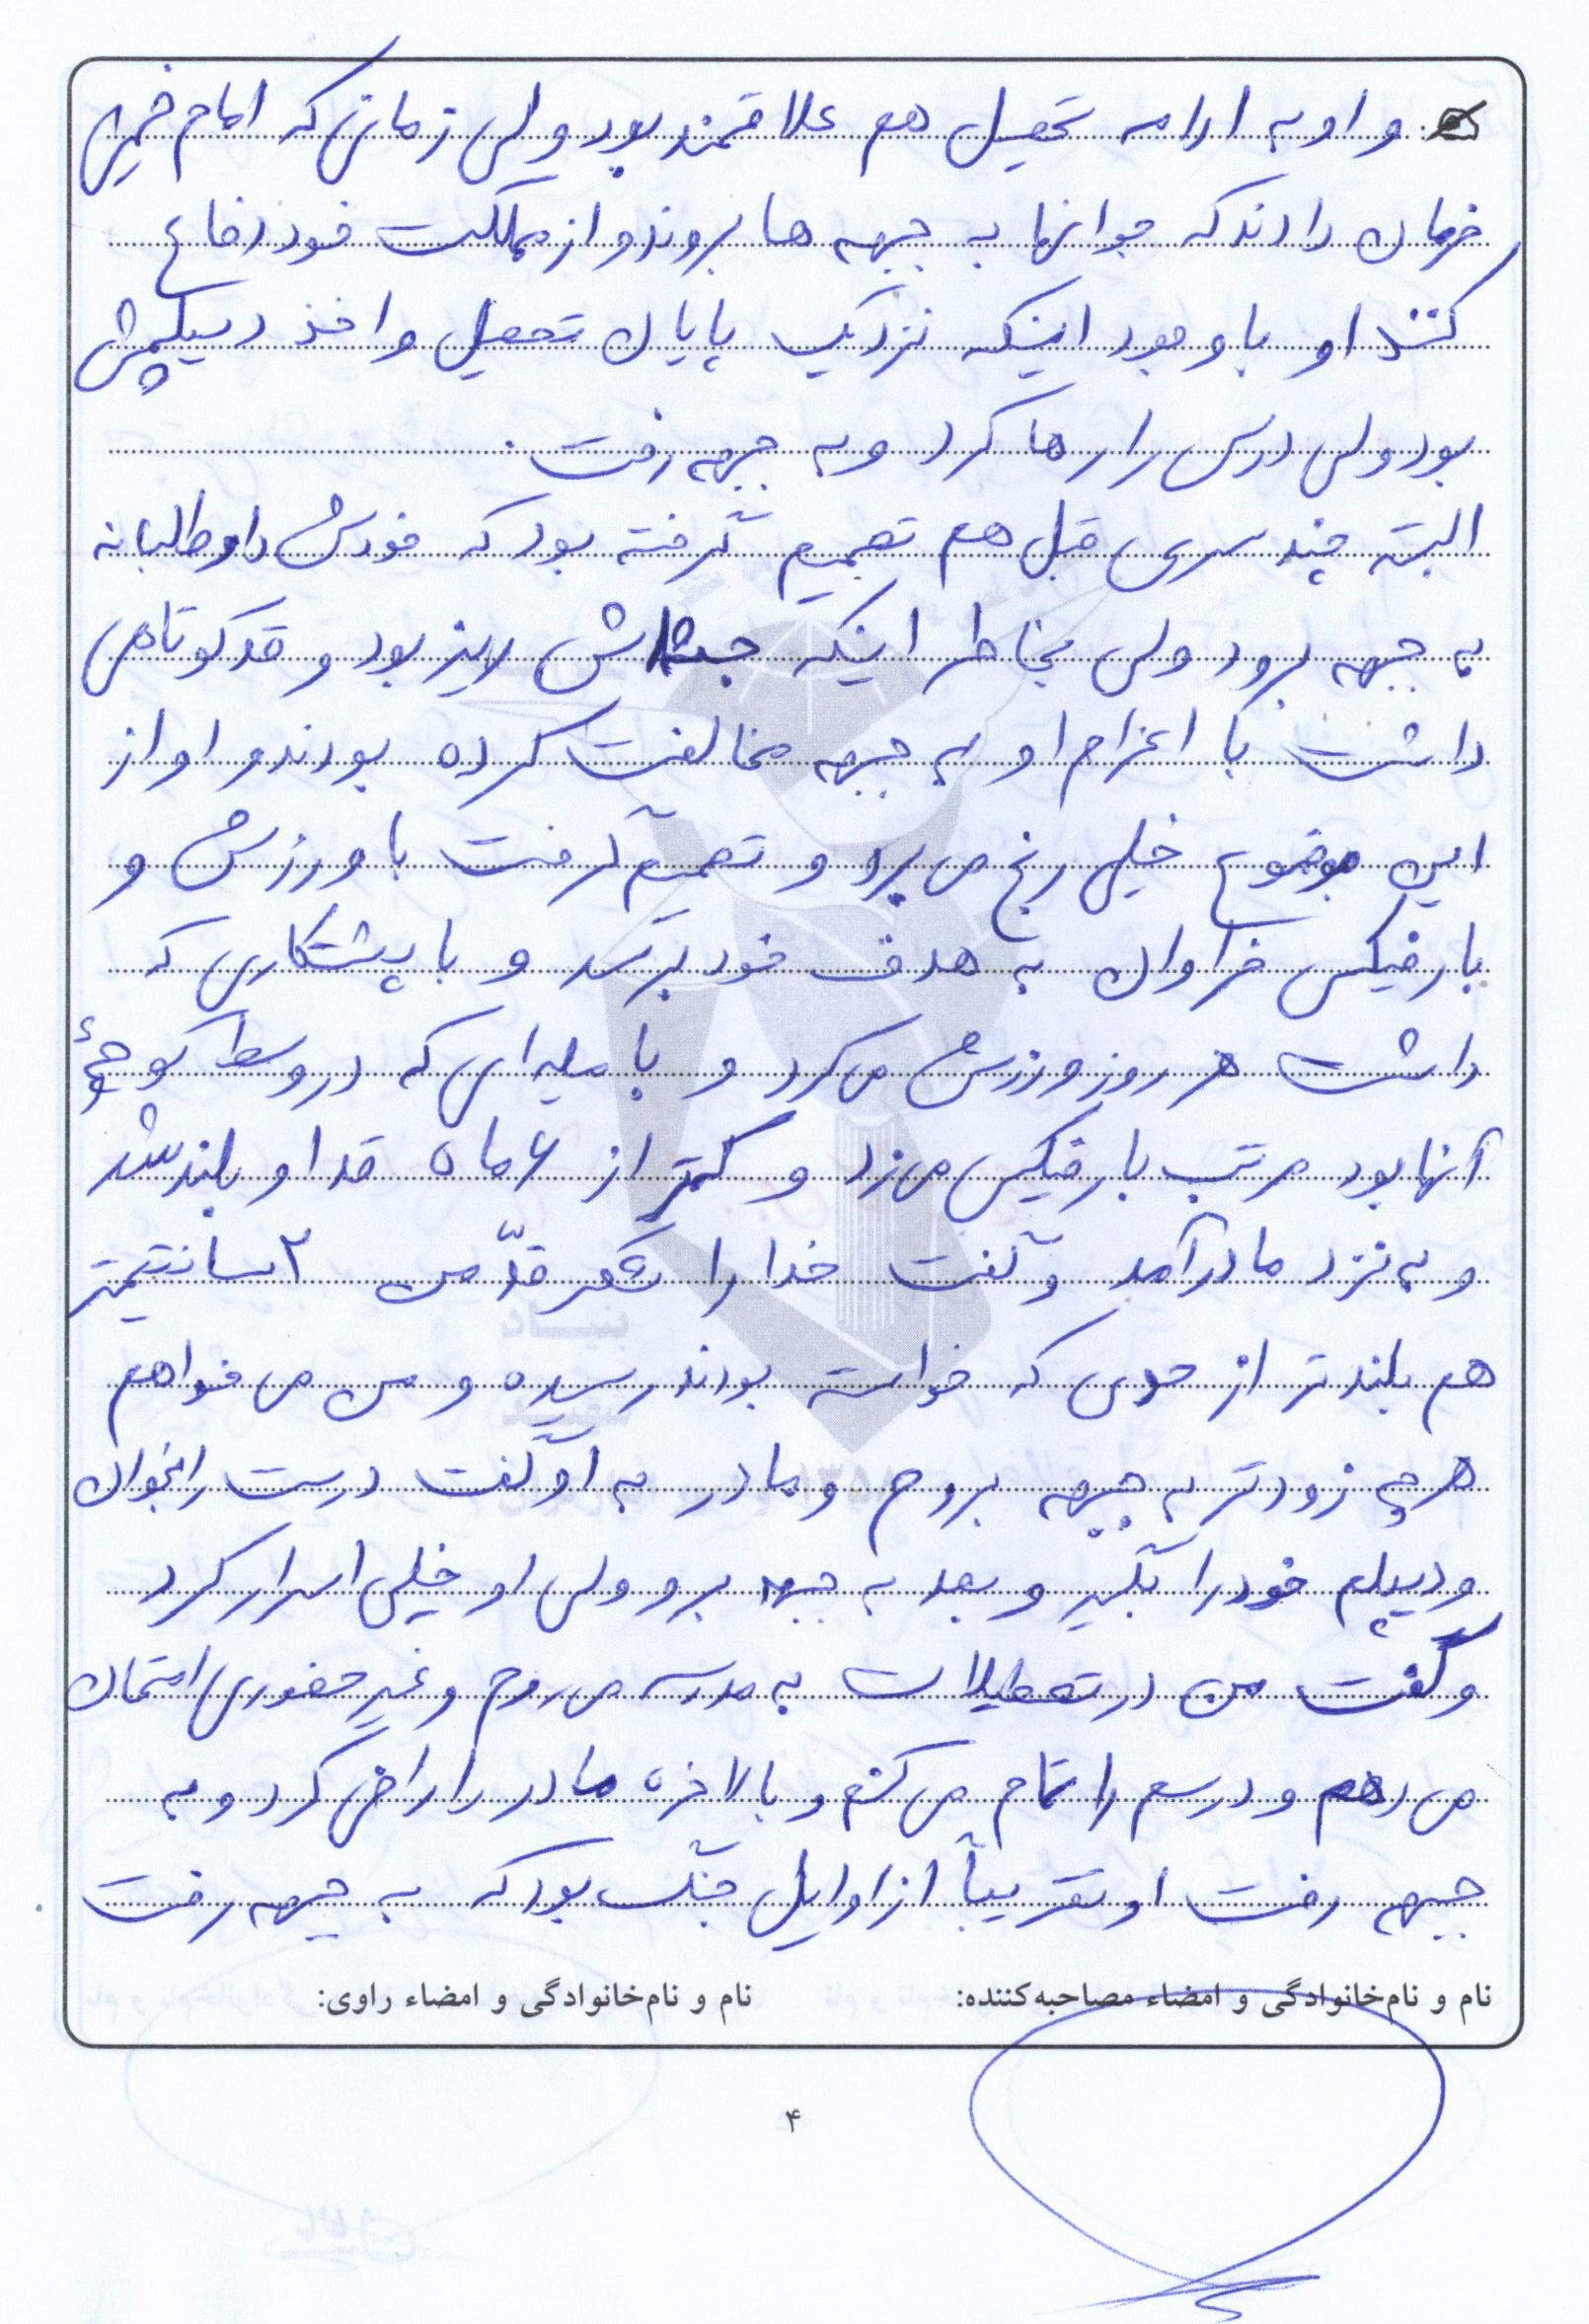 و او به ادامه تحصیل هم علاقمند بود ولی زمانی که امام خمینی
فرمان دادند که جوانها به جبهه ها بروند و از مملکت خود دفاع
کنند او با وجود اینکه نزدیک پایان تحصیل و اخذ دیپلمش
بود ولی درس را رها کرد و به جبهه رفت.
البته چند سری قبل هم تصمیم گرفته بود که خودش داوطلبانه
به جبهه برود ولی بخاطر اینکه جثه‌اش ریز بود و قد کوتاهی
داشت با اعزام او به جبهه مخالفت کرده بودند و او از
این موضوع خیلی رنج می برد و تصمیم گرفت با ورزش و
بارفیکس فراوان به هدف خود برسد و با پشتکاری که
داشت هر روز ورزش می کرد و با میله ای که در وسط کوچۀ
آنها بود مرتب بارفیکس می زد و کمتر از ۶ ماه قد او بلند شد
و به نزد مادر آمد و گفت خدا را شکر قدّ من ۲ سانتیمتر
هم بلندتر از حدی که خواسته بودند رسیده و من می خواهم
هر چه زودتر به جبهه بروم و مادر به او گفت درست را بخوان
و دیپلم خود را بگیر و بعد به جبهه برو ولی او خیلی اسرار کرد
و گفت من در تعطیلات به مدرسه می روم و غیر حضوری امتحان
می دهم و درسم را تمام می کنم و بالاخره مادر را راضی کرد و به
جبهه رفت او تقریباً از اوایل جنگ بود که به جبهه رفت
نام و نام‌خانوادگی و امضاء مصاحبه‌کننده: نام و نام‌خانوادگی و امضاء راوی:
۴